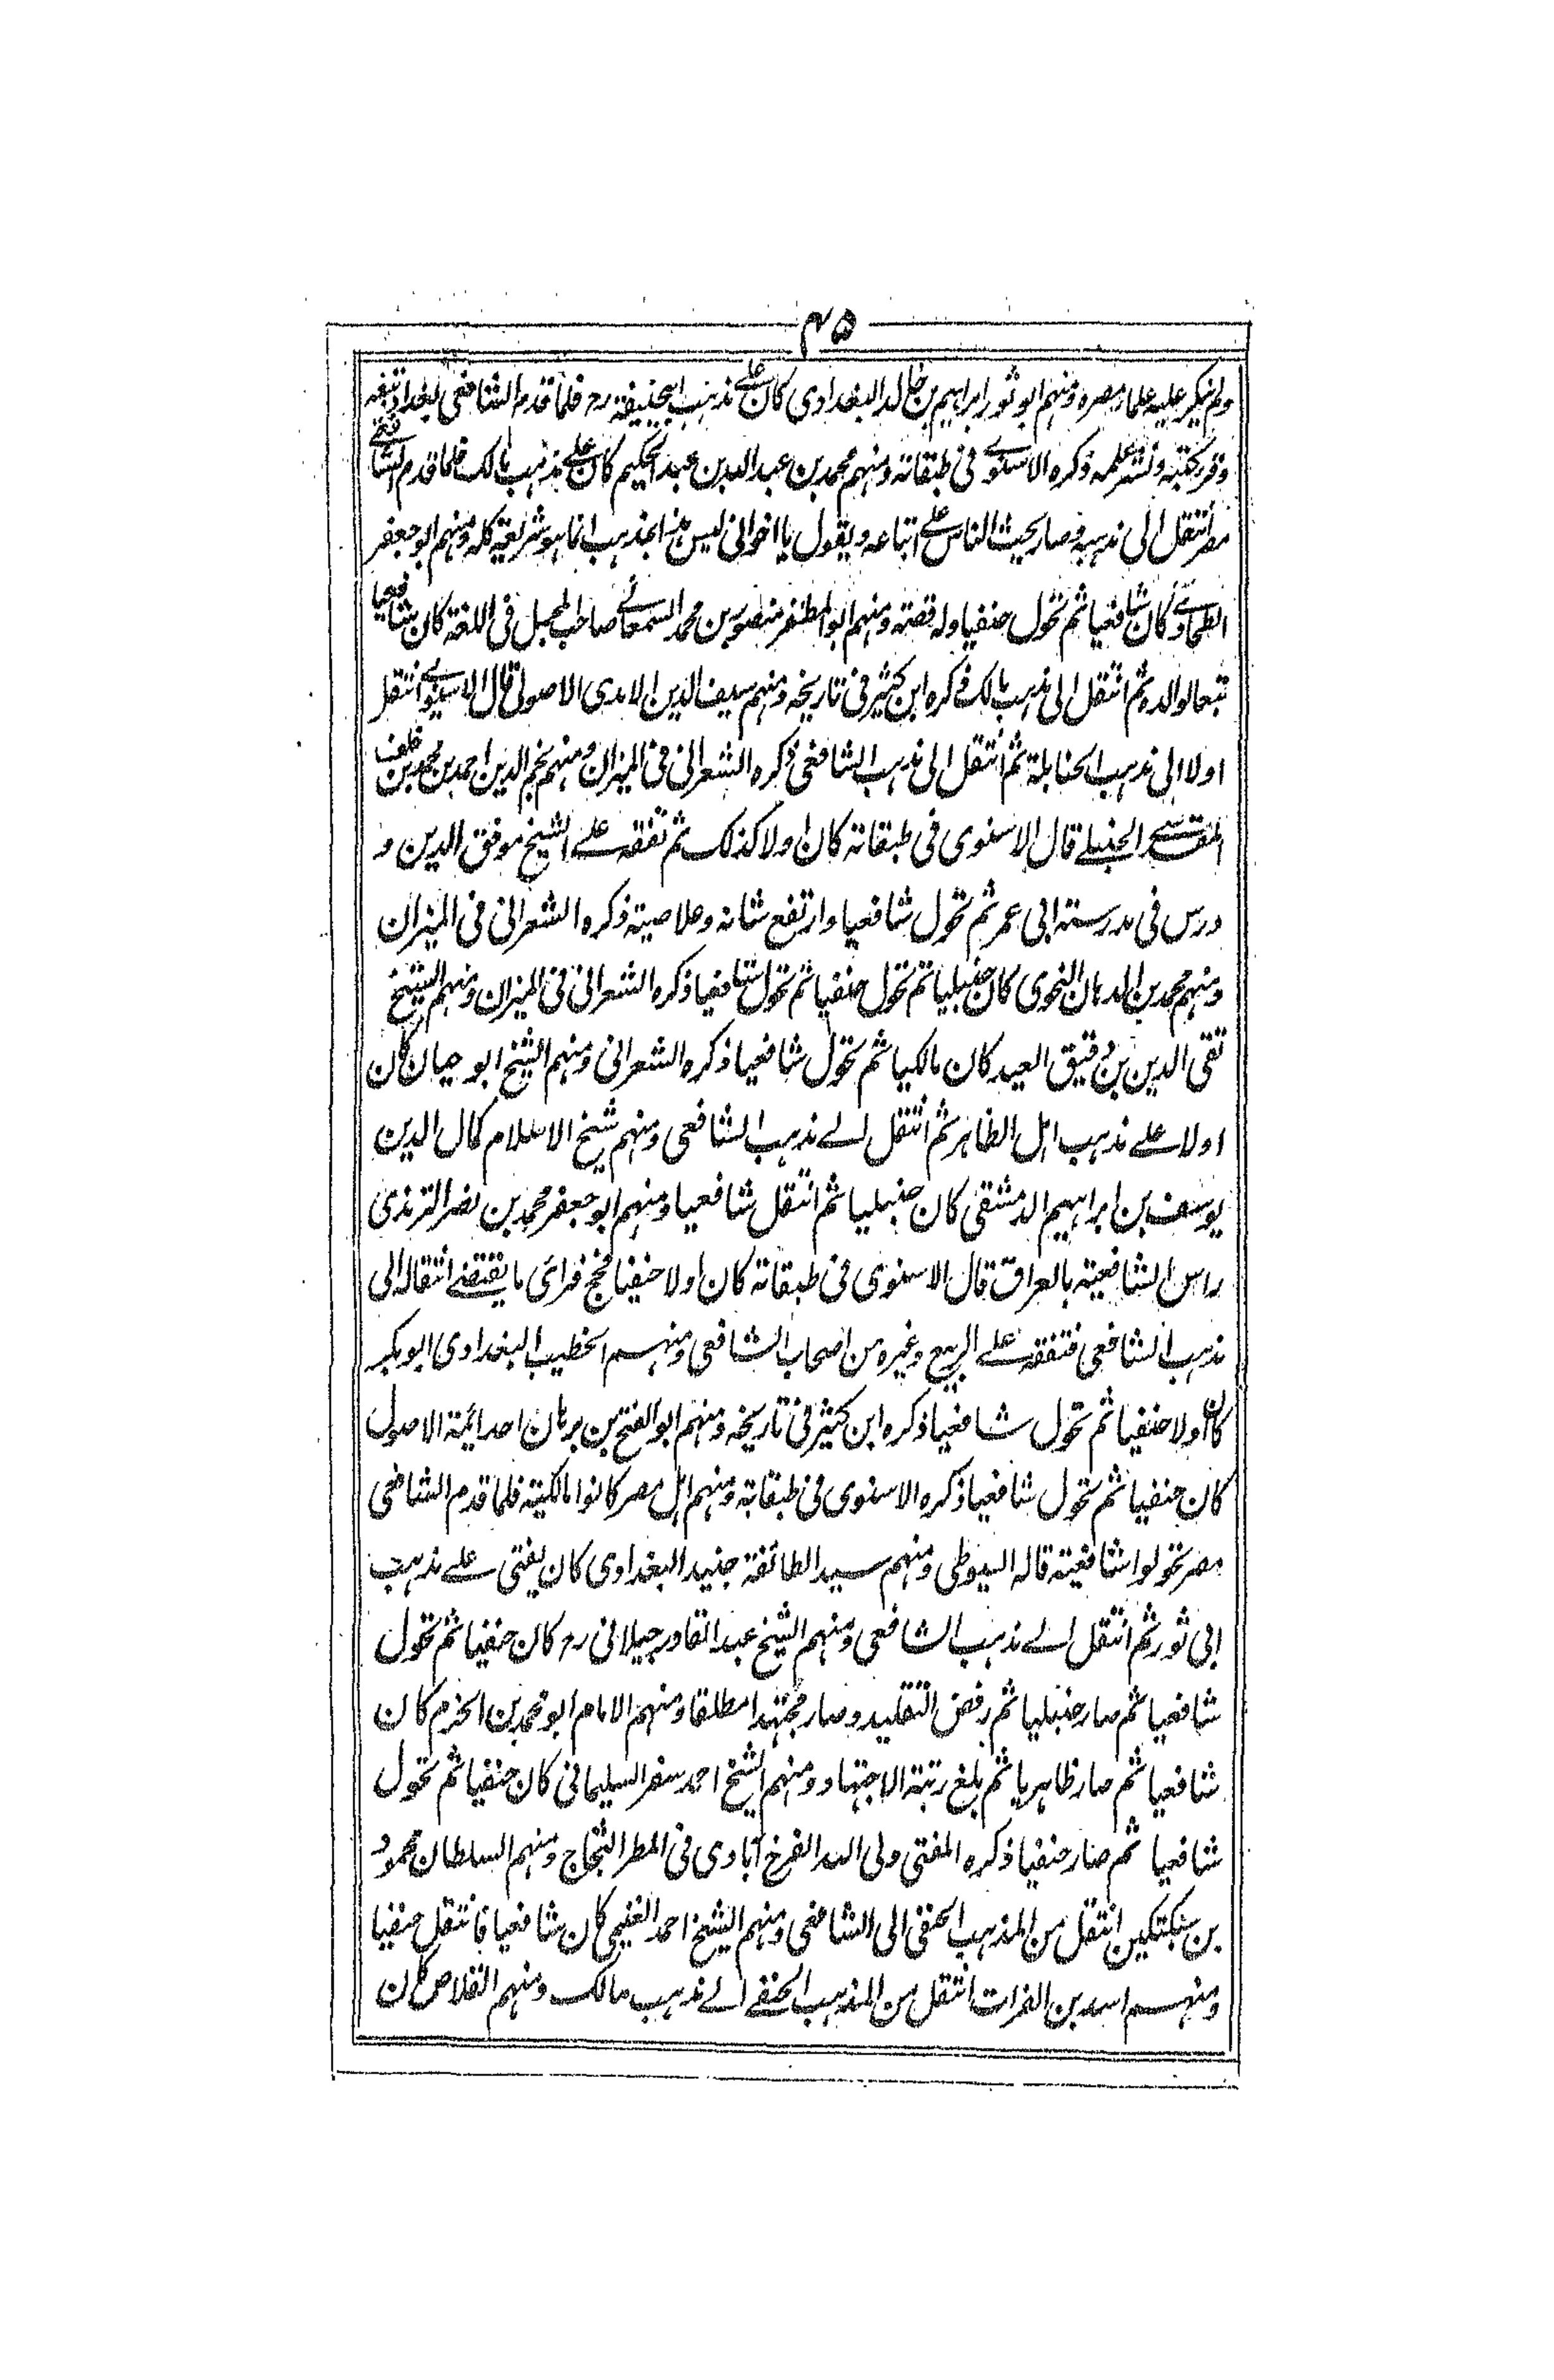 ۴۵
ولم ينكر عليه علماء مصره ومنهم ابو ثور ابراهيم بن خالد البغدادى كان على مذهب ابيحنيفة رح فلما قدم الشافعى بغداد تبعه
وقرء كتبه ونشر علمه ذكره الاسنوى فى طبقاته ومنهم محمد بن عبد الله بن عبد الحكيم كان على مذهب مالك فلما قدم الشافعى
مصر انتقل الى مذهبه وصار يحث الناس على اتباعه ويقول يا اخوانى ليس هذا بمذهب انما هو شريعة كله ومنهم ابو جعفر
الطحاوى كان شافعيا ثم تحول حنفيا وله قصته ومنهم ابو المظفر منصور بن محمد السمعانى صاحب المجمل فى اللغة كان شافعيا
تبعا لوالده ثم انتقل الى مذهب مالك ذكره ابن كثير فى تاريخه ومنهم سيف الدين الامدى الاصولى قال الاسنوى انتقل
اولا الى مذهب الحنابلة ثم انتقل الى مذهب الشافعى ذكره الشعرانى فى الميزان ومنهم نجم الدين احمد بن محمد بن خلف
المقدسى الحنبلى قال الاسنوى فى طبقاته كان اولا كذلك ثم تفقه على الشيخ موفق الدين و
درس فى مدرسته ابى عمر ثم تحول شافعيا وارتفع شانه وعلا صيته ذكره الشعرانى فى الميزان
ومنهم محمد بن الدهان النحوى كان حنبليا ثم تحول حنفيا ثم تحول شافعيا ذكره الشعرانى فى الميزان ومنهم الشيخ
تقى الدين بن دقيق العيد كان مالكيا ثم تحول شافعيا ذكره الشعرانى ومنهم الشيخ ابو حيان كان
اولا على مذهب اهل الظاهر ثم انتقل الى مذهب الشافعى ومنهم شيخ الاسلام كمال الدين
يوسف بن ابراهيم الدمشقى كان حنبليا ثم انتقل شافعيا ومنهم ابو جعفر محمد بن نصر الترمذى
راس الشافعية بالعراق قال الاسنوى فى طبقاته كان اولا حنفيا فحج فراى ما يقتضى انتقاله الى
مذهب الشافعى فتفقه على الربيع وغيره من اصحاب الشافعى ومنهم الخطيب البغدادى ابو بكر
كان اولا حنفيا ثم تحول شافعيا ذكره ابن كثير فى تاريخه ومنهم ابو الفتح بن برهان احد ائمة الاصول
كان حنفيا ثم تحول شافعيا ذكره الاسنوى فى طبقاته ومنهم اهل مصر كانوا مالكية فلما قدم الشافعى
مصر تحولوا شافعية قاله السيوطى ومنهم سيد الطائفة جنيد البغدادى كان يفتى على مذهب
ابى ثور ثم انتقل الى مذهب الشافعى ومنهم الشيخ عبد القادر جيلانى رح كان حنفيا ثم تحول
شافعيا ثم صار حنبليا ثم رفض التقليد وصار مجتهدا مطلقا ومنهم الامام ابو محمد بن الحزم كان
شافعيا ثم صار ظاهريا ثم بلغ رتبة الاجتهاد ومنهم الشيخ احمد سفر السليمانى كان حنفيا ثم تحول
شافعيا ثم صار حنفيا ذكره المفتى ولى الله الفرخ آبادى فى المطر الثجاج ومنهم السلطان محمود
بن سبكتكين انتقل من المذهب الحنفى الى الشافعى ومنهم الشيخ احمد كان شافعيا فانتقل حنفيا
ومنهم اسد بن الفرات انتقل من المذهب الحنفى الى مذهب مالك ومنهم القلاص كان